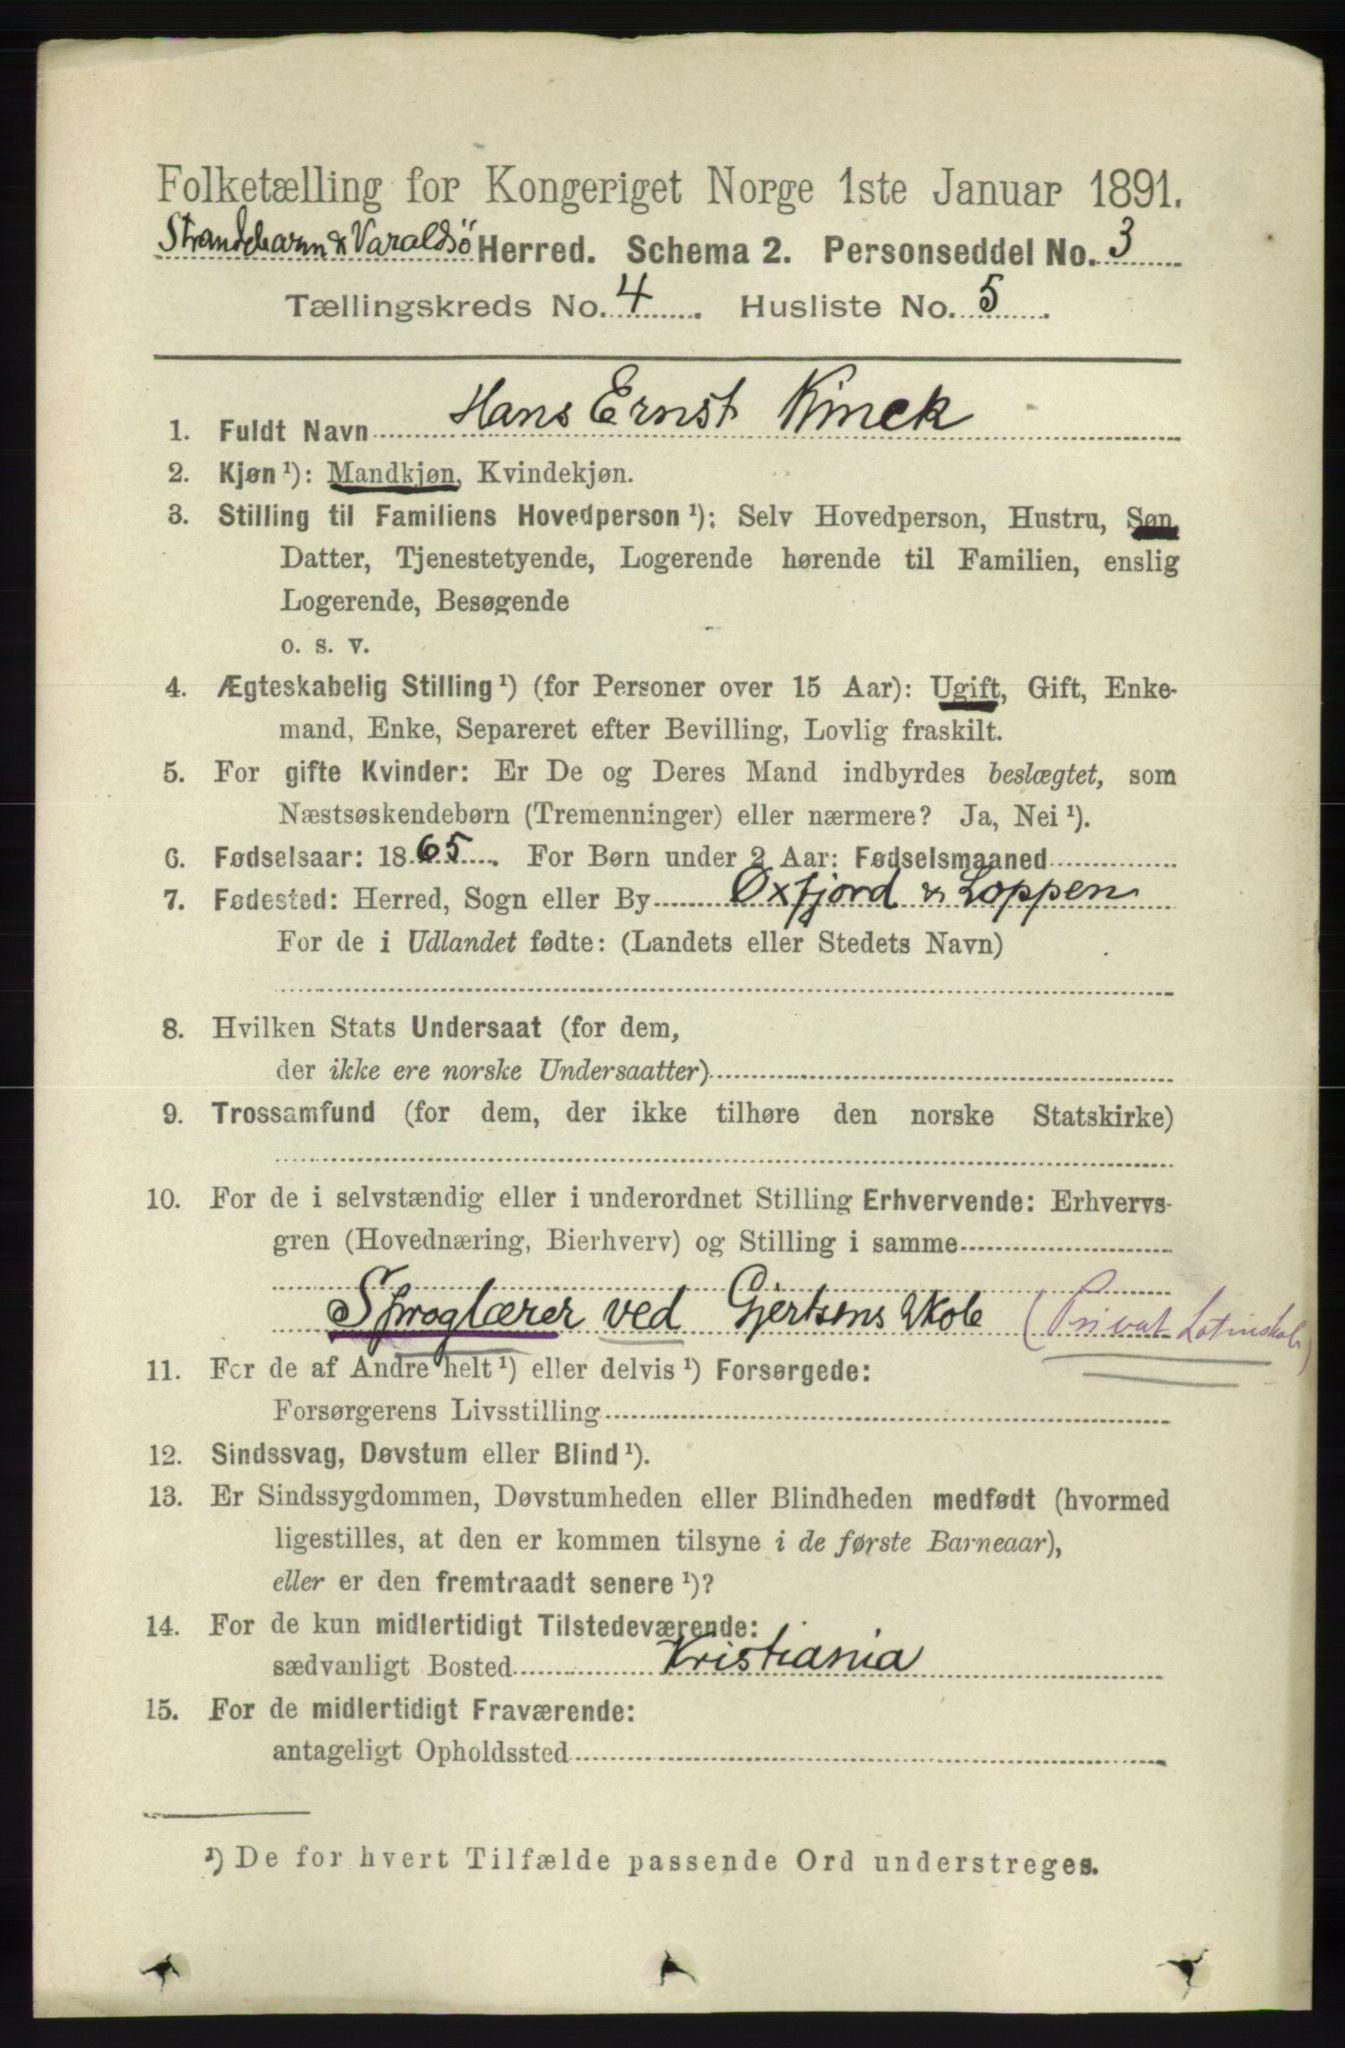 Folketælling for Kongeriget Norge 1ste Januar 1891.
Strandebarm & Varaldsø Herred. Schema 2. Personseddel No. 3
Tællingskreds No. 4. Husliste No. 5.
1. Fuldt Navn Hans Ernst Kinck
2. Kjøn ¹): Mandkjøn, Kvindekjøn.
3. Stilling til Familiens Hovedperson ¹): Selv Hovedperson, Hustru, Søn,
Datter, Tjenestetyende, Logerende hørende til Familien, enslig
Logerende, Besøgende
o. s. v.
4. Ægteskabelig Stilling ¹) (for Personer over 15 Aar): Ugift, Gift, Enke-
mand, Enke, Separeret efter Bevilling, Lovlig fraskilt.
5. For gifte Kvinder: Er De og Deres Mand indbyrdes beslægtet, som
Næstsøskendebørn (Tremenninger) eller nærmere? Ja, Nei ¹).
6. Fødselsaar: 1865. For Børn under 2 Aar: Fødselsmaaned
7. Fødested: Herred, Sogn eller By Øxfjord & Loppen
For de i Udlandet fødte: (Landets eller Stedets Navn)
8. Hvilken Stats Undersaat (for dem,
der ikke ere norske Undersaatter)
9. Trossamfund (for dem, der ikke tilhøre den norske Statskirke)
10. For de i selvstændig eller i underordnet Stilling Erhvervende: Erhvervs-
gren (Hovednæring, Bierhverv) og Stilling i samme
Sproglærer ved Gjertsens Skole (Privat Latinskole)
11. For de af Andre helt ¹) eller delvis ¹) Forsørgede:
Forsørgerens Livsstilling
12. Sindssvag, Døvstum eller Blind ¹).
13. Er Sindssygdommen, Døvstumheden eller Blindheden medfødt (hvormed
ligestilles, at den er kommen tilsyne i de første Barneaar),
eller er den fremtraadt senere ¹)?
14. For de kun midlertidigt Tilstedeværende:
sædvanligt Bosted Kristiania
15. For de midlertidigt Fraværende:
antageligt Opholdssted
¹) De for hvert Tilfælde passende Ord understreges.